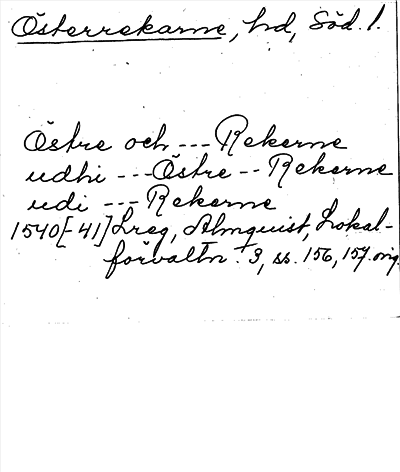 Österrekarne, hd, Söd. l.
Östre och --- Rekerne
udhi --- Östre -- Rekerne
udi --- Rekerne
1540[-41] Lreg, Almquist, Lokal-
förvaltn. 3, ss. 156, 157. orig.